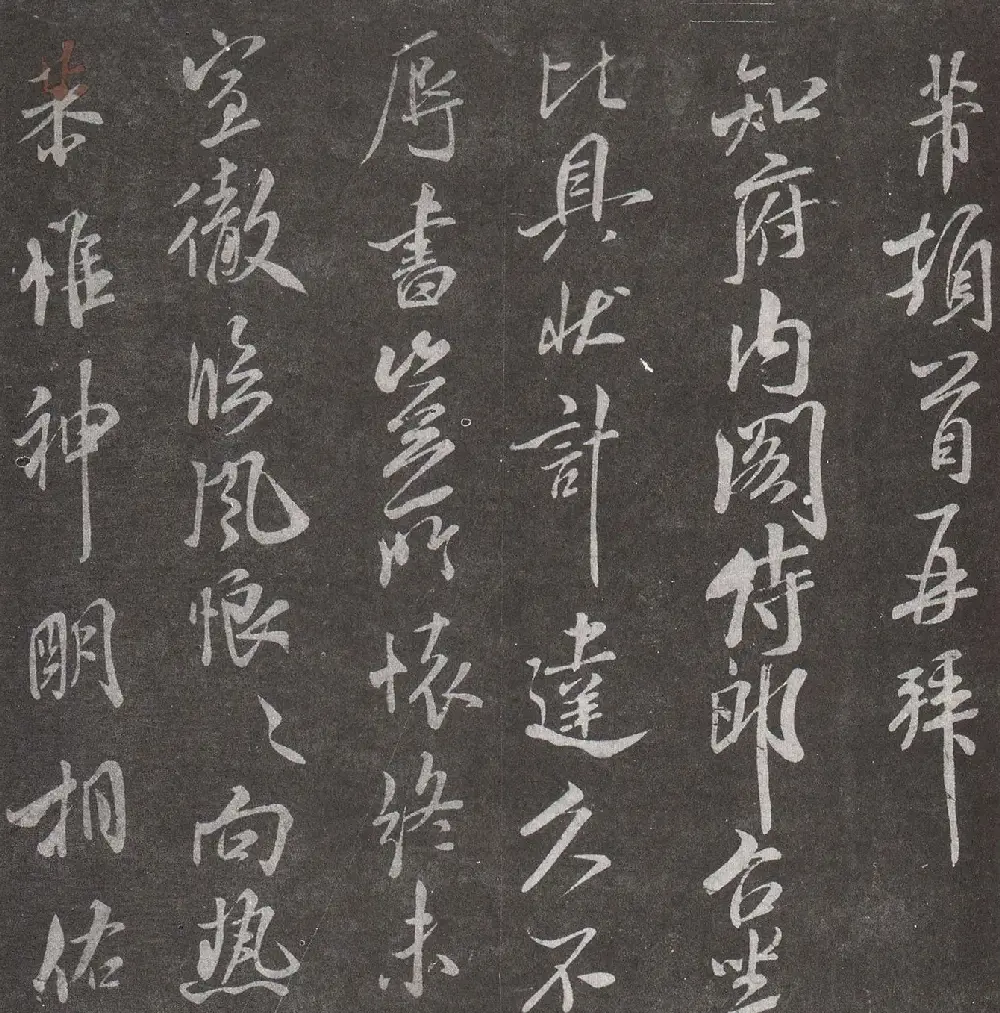 芾頓首再拜
知府内閣侍郎台坐
比具狀計達久不
辱書豈所懷終未
宣徹臨風恨〻向熱
恭惟神明相佑